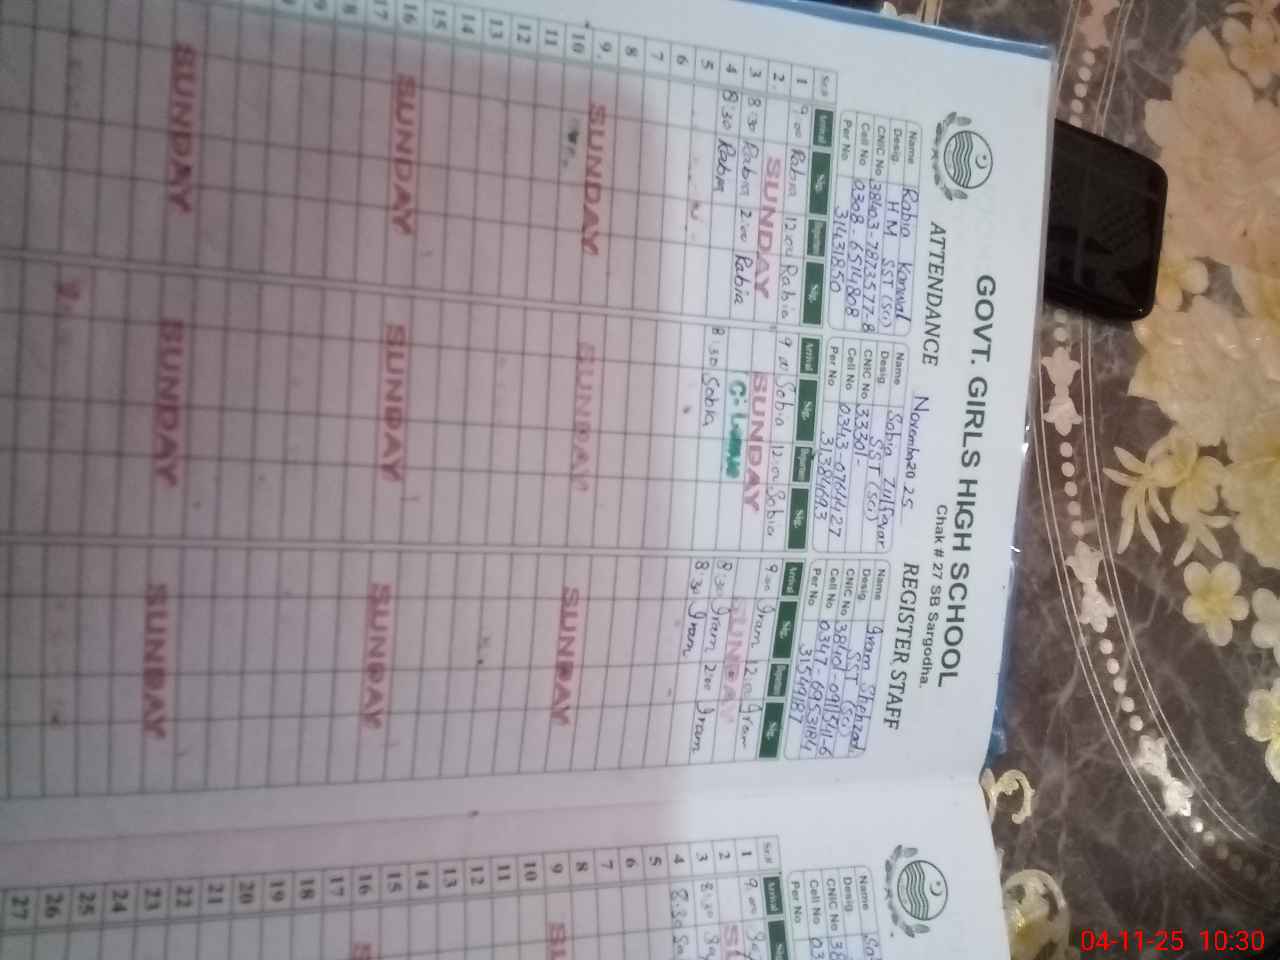 GOVT. GIRLS HIGH SCHOOL
Chak # 27 SB Sargodha.
ATTENDANCE November 2025 REGISTER STAFF
Name Rabia Kanwal
Desig. HM SST (Sci)
CNIC No 38403-7873577-8
Cell No 0308-6514808
Per No 31431850
Name Sobia Zulfqar
Desig. SST (Sci)
CNIC No 33301-
Cell No 0343-0764427
Per No 31384693
Name Iram Shehzadi
Desig. SST (Sci)
CNIC No
Cell No 0347-6953184
Per No 31549187
Sr.# Arrival Sig. Departure Sig. Arrival Sig. Departure Sig. Arrival Sig. Departure Sig.
1 9:00 Rabia 12:00 Rabia 9:00 Sobia 12:00 Sobia 9:00 Iram 12:00 Iram
2. SUNDAY SUNDAY SUNDAY
3 8:30 Rabia 2:00 Rabia C. Leave 8:30 Iram 2:00 Iram
4 8:30 Rabia 8:30 Sobia 8:30 Iram
5
6
7
8
9. SUNDAY SUNDAY SUNDAY
10
11
12
13
14
15
16 SUNDAY SUNDAY SUNDAY
17
18
SUNDAY SUNDAY SUNDAY
Name
Desig.
CNIC No 38
Cell No 03
Per No
Sr.# Arrival
1 9:00
2
3 8:30
4 8:30
5
6
7
8
9
10
11
12
13
14
15
16
17
18
19
20
21
22
23
24
25
26
27
04-11-25 10:30